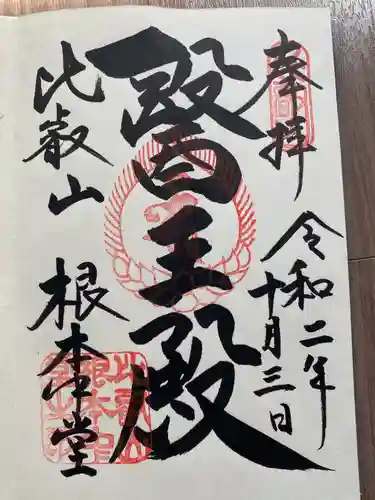 奉拝
令和二年
十月三日
醫王殿
比叡山 根本堂